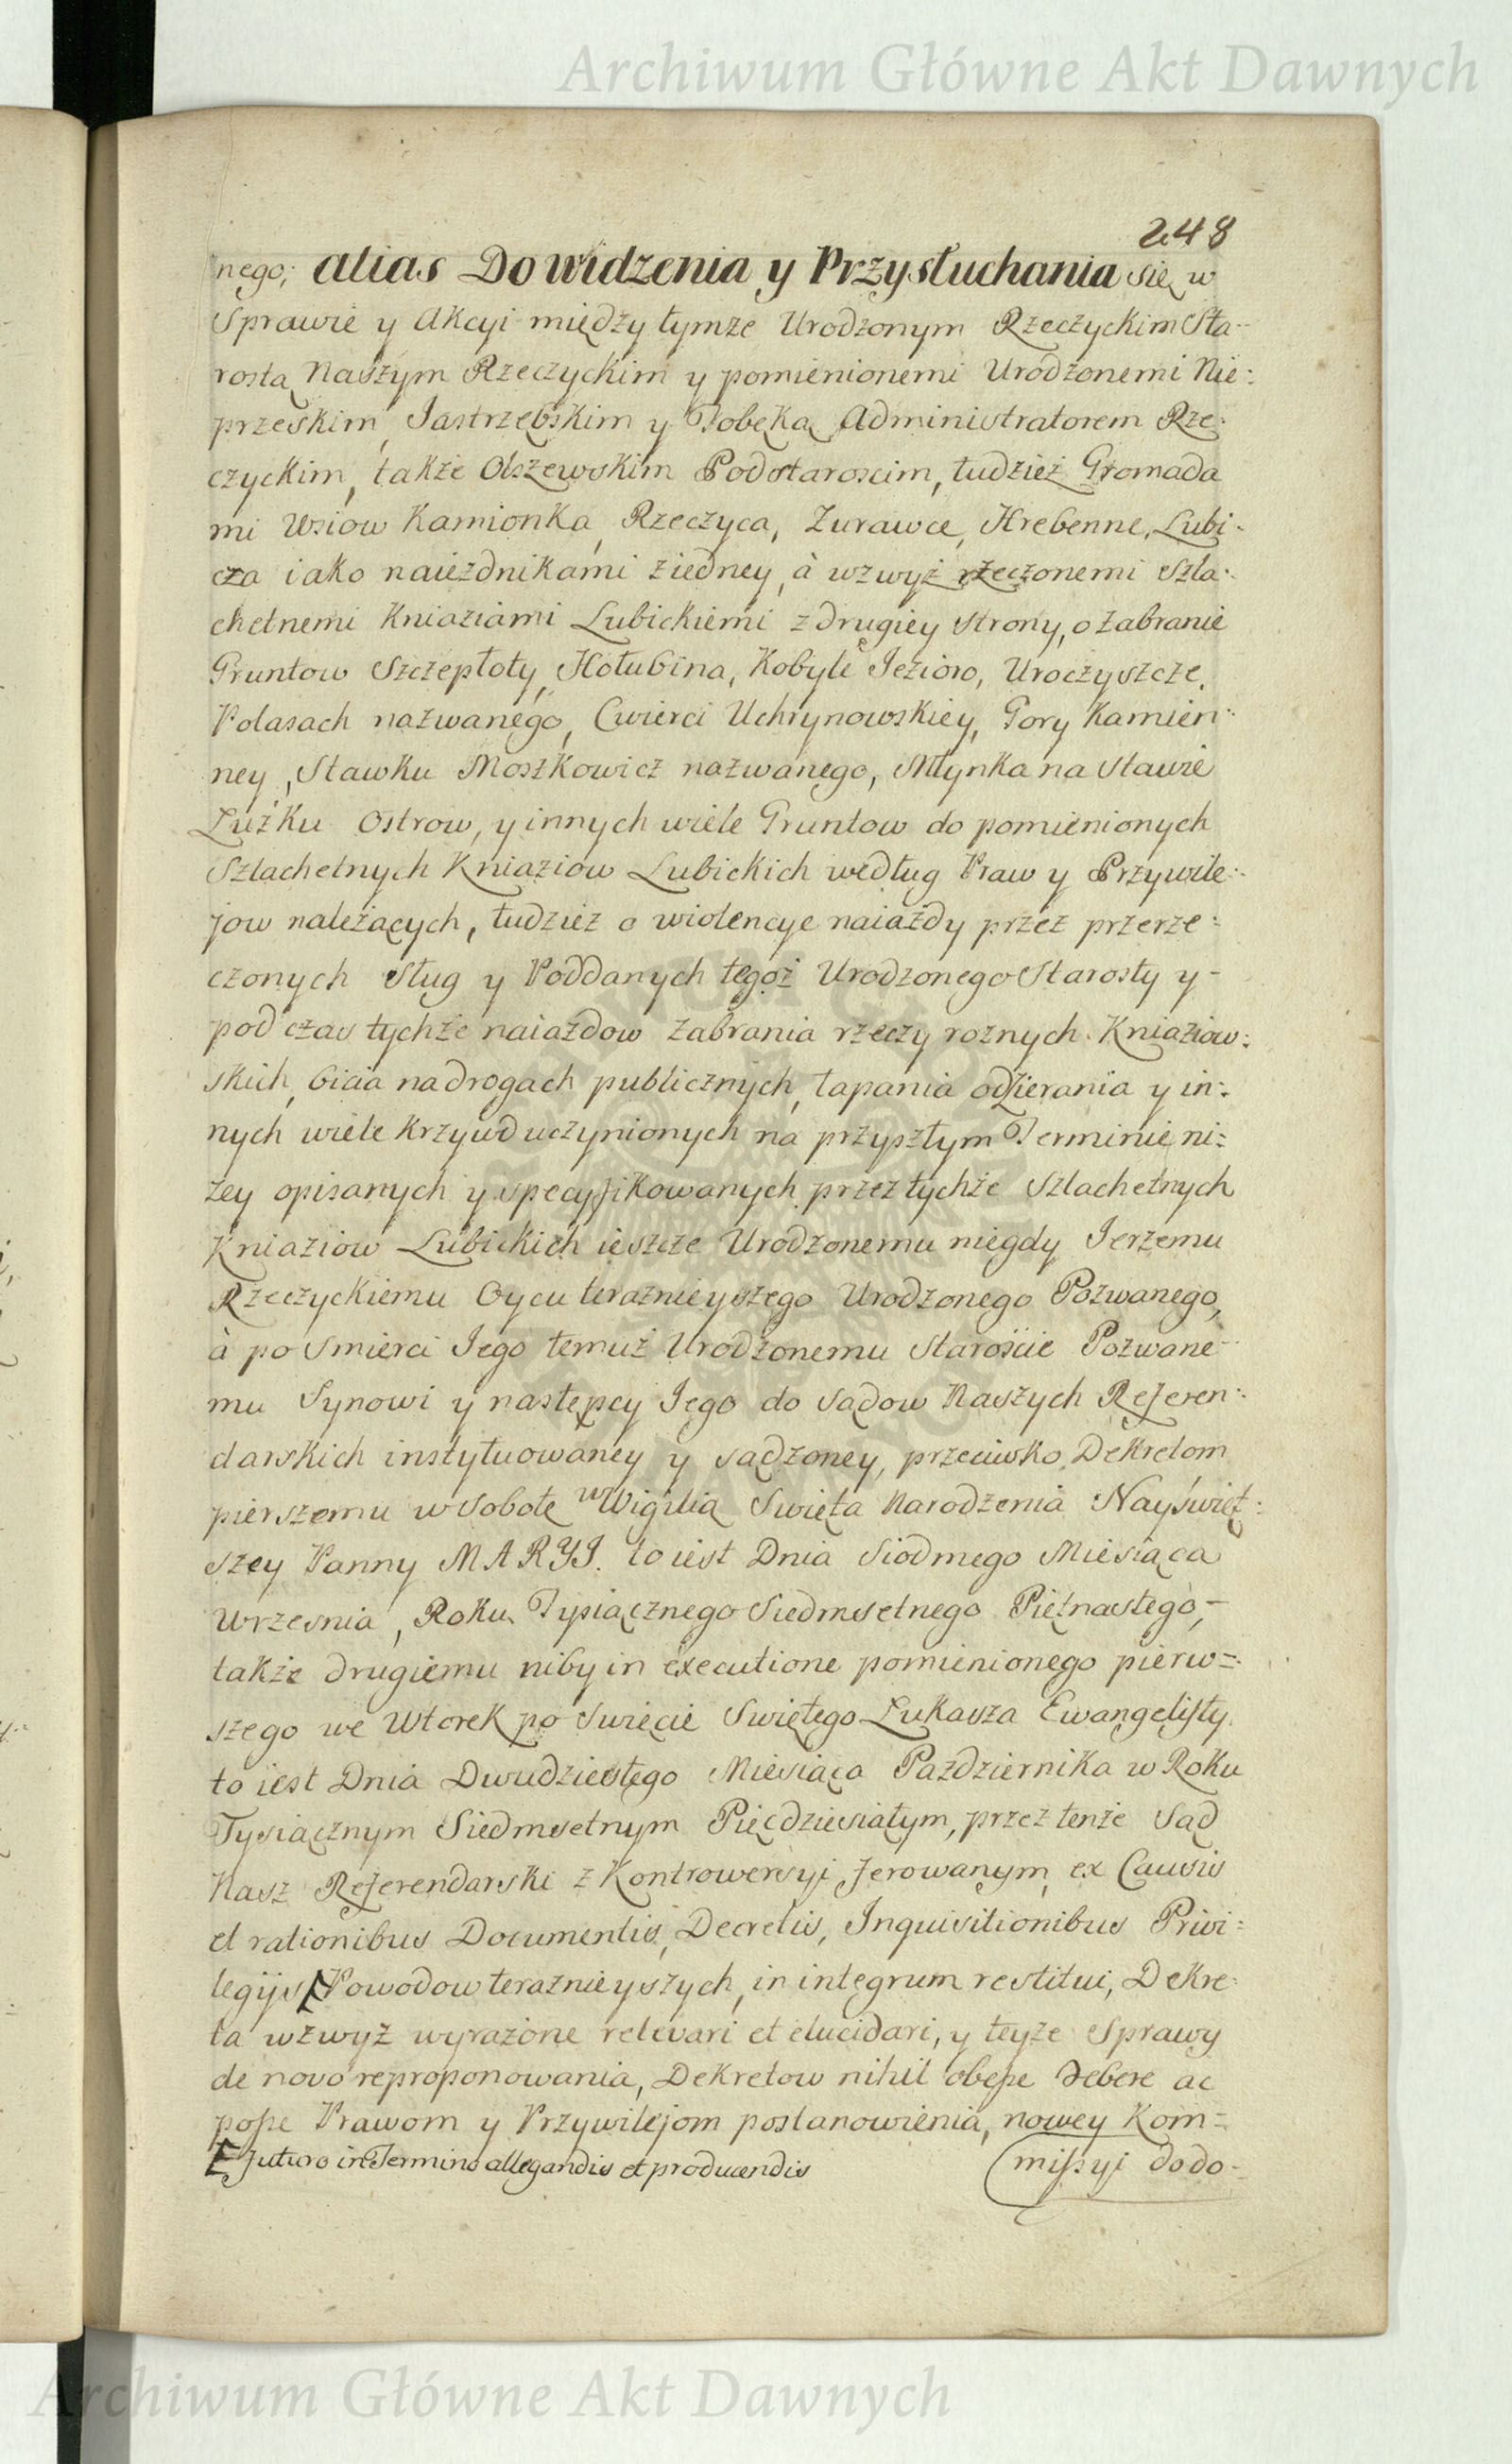 Archiwum Główne Akt Dawnych
248
nego; alias Do Widzenia y Przysłuchania się w
Sprawie y Akcyi między tymze Urodzonym Rzeczyckim Sta-
rostą Naszym Rzeczyckim y pomienionemi Urodzonemi Nie:
przeskim, Jastrzębskim y Tobęką Administratorem Rze:
czyckim, także Olszewskim Podstaroscim, tudzież Gromada
mi Wsiow Kamionka, Rzeczyca, Zurawce, Hrebenne, Lubi-
cza iako naiezdnikami ziedney, à wzwyż rzeczonemi Szla:
chetnemi Kniaziami Lubickiemi z drugiey strony, o zabranie
Gruntow Szczepłoty, Hołubina, Kobyle Jezioro, Uroczyszcze,
Polasach nazwanego, Cwierci Uchrynowskiey, Gory Kamien-
ney, Stawku Moszkowicz nazwanego, Młynka na Stawie
Łużku Ostrow, y innych wiele Gruntow do pomienionych
Szlachetnych Kniaziow Lubickich według Praw y Przywile-
jow należących, tudzież o wiolencye naiazdy przez przerze:
czonych Sług y Poddanych tegoż Urodzonego Starosty y -
pod czas tychże naiazdow zabrania rzeczy roznych Kniaziow:
skich, bicia na drogach publicznych, łapania odzierania y in:
nych wiele krzywd uczynionych na przyszłym Terminie ni:
zey opisanych y specyfikowanych przez tychże Szlachetnych
Kniaziow Lubickich ieszcze Urodzonemu niegdy Jerzemu
Rzeczyckiemu Oycu teraznieyszego Urodzonego Pozwanego,
à po Smierci Jego temuż Urodzonemu Staroście Pozwane-
mu Synowi y następcy Jego do Sądow Naszych Referen-
darskich instytuowaney y sądzoney, przeciwko Dekretom
pierszemu w Sobotę w Wigilią Swięta Narodzenia Nayświęt:
szey Panny MARYI. to iest Dnia Siodmego Miesiąca
Wrzesnia, Roku Tysiącznego Siedmsetnego Piętnastego, -
także drugiemu niby in executione pomienionego pierw=
szego we Wtorek po Swięcie Swiętego Łukasza Ewangelisty
to iest Dnia Dwudziestego Miesiąca Października w Roku
Tysiącznym Siedmsetnym Pięćdziesiątym, przez tenże Sąd
Nasz Referendarski z Kontrowersyi ferowanym, ex Causis
et rationibus Documentis, Decretis, Inquisitionibus Privi:
legijs [ Powodow teraznieyszych, in integrum restitui, Dekre-
ta wzwyż wyrażone relevari et elucidari, y teyże Sprawy
de novo reproponowania, Dekretow nihil obeſse debere ac
poſse Prawom y Przywilejom postanowienia, nowey Kom=
[ futuro in Termino allegandis et producendis
miſsyi dodo-
Archiwum Główne Akt Dawnych